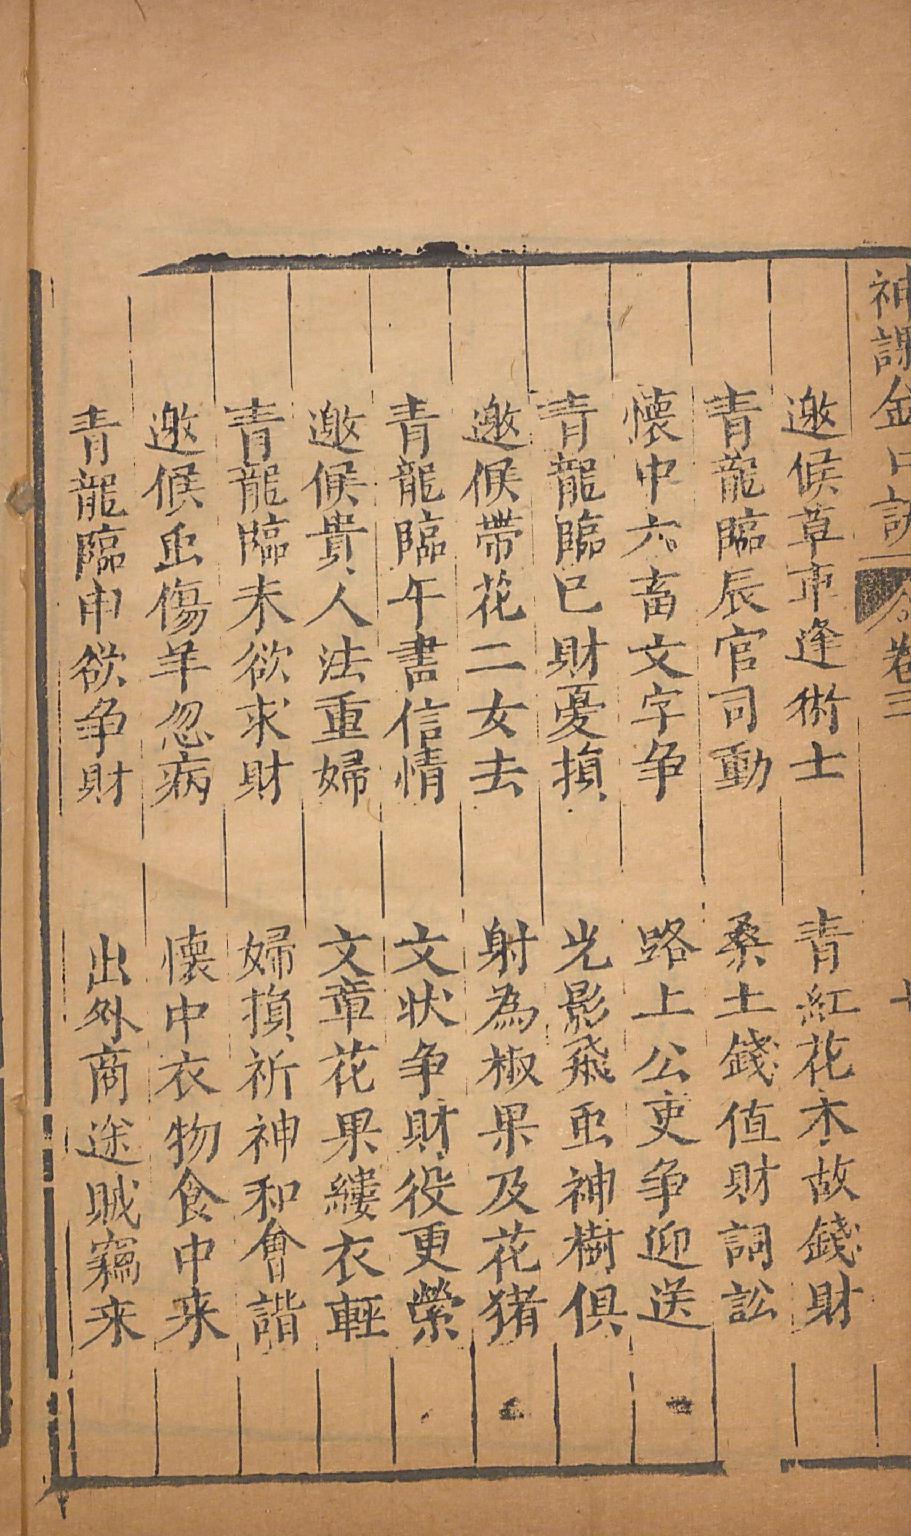 神課金口訣 卷三
邀候草市逢術士 青紅花木故錢財
青龍臨辰官司動 桑土錢值財詞訟
懷中六畜文字争 路上公吏争迎送
青龍臨巳財憂損 光影飛虫神樹俱
邀候帶花二女去 射為椒果及花猪
青龍臨午書信情 文狀争財役更縈
邀候貴人法重婦 文章花果縷衣輕
青龍臨未欲求財 婦損祈神和會諧
邀候虫傷羊忽病 懷中衣物食中来
青龍臨申欲争財 出外商途賊竊来